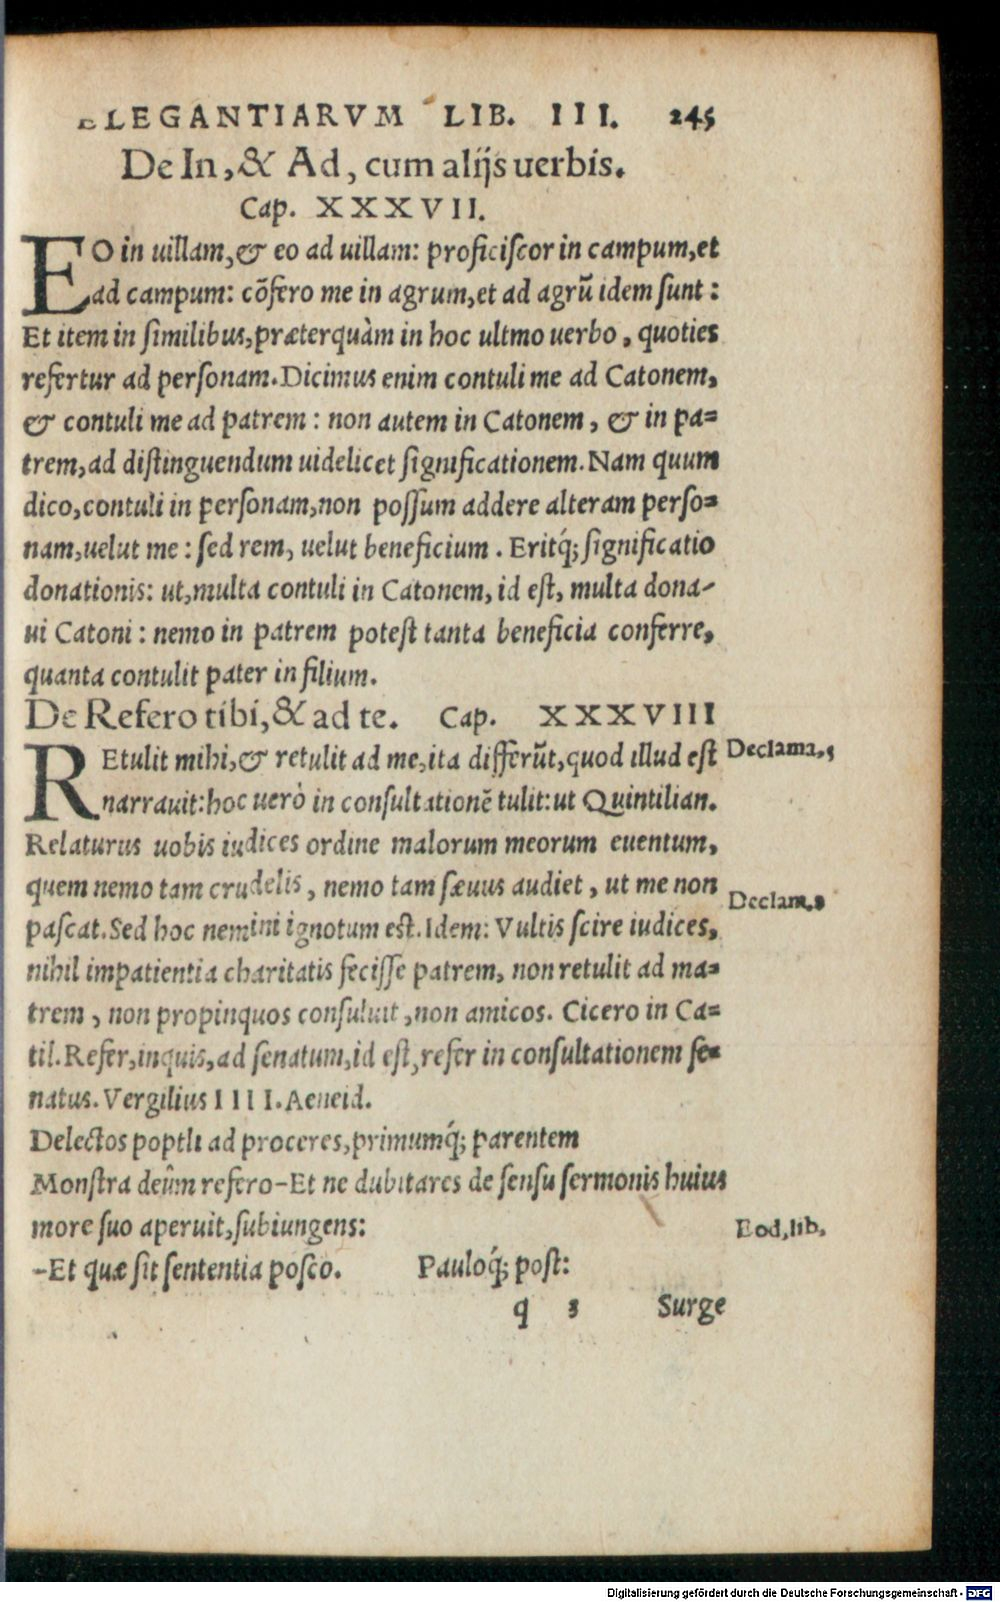 ELEGANTIARVM LIB. III. 245
De In, & Ad, cum alijs uerbis.
Cap. XXXVII.
EO in uillam, & eo ad uillam: proficiscor in campum, et
ad campum: cōfero me in agrum, et ad agrū idem sunt:
Et item in similibus, præterquàm in hoc ultmo uerbo, quoties
refertur ad personam. Dicimus enim contuli me ad Catonem,
& contuli me ad patrem: non autem in Catonem, & in pa=
trem, ad distinguendum uidelicet significationem. Nam quum
dico, contuli in personam, non possum addere alteram perso=
nam, uelut me: sed rem, uelut beneficium. Eritq́; significatio
donationis: ut, multa contuli in Catonem, id est, multa dona-
ui Catoni: nemo in patrem potest tanta beneficia conferre,
quanta contulit pater in filium.
De Refero tibi, & ad te. Cap. XXXVIII
REtulit mihi, & retulit ad me, ita differūt, quod illud est Declama.5
narrauit: hoc uerò in consultationē tulit: ut Quintilian.
Relaturus uobis iudices ordine malorum meorum euentum,
quem nemo tam crudelis, nemo tam sæuus audiet, ut me non
Declam.8
pascat. Sed hoc nemini ignotum est. Idem: Vultis scire iudices,
nihil impatientia charitatis fecisse patrem, non retulit ad ma=
trem, non propinquos consuluit, non amicos. Cicero in Ca=
til. Refer, inquis, ad senatum, id est, refer in consultationem se=
natus. Vergilius IIII. Aeneid.
Delectos poptli ad proceres, primumq́; parentem
Monstra deûm refero-Et ne dubitares de sensu sermonis huius
more suo aperuit, subiungens:
Eod, lib,
-Et quæ sit sententia posco. Pauloq́; post:
q 3 Surge
Digitalisierung gefördert durch die Deutsche Forschungsgemeinschaft - DFG